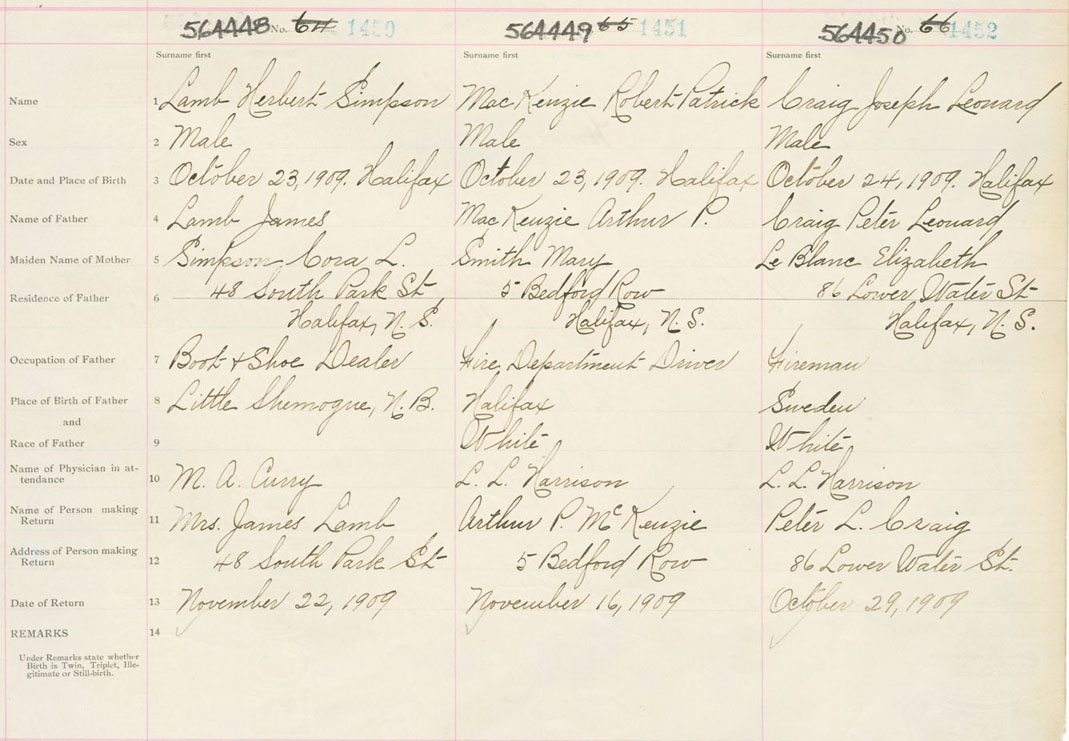 564448 No. 64 1450 564449 65 1451 564450 No. 66 1452
Surname first Surname first Surname first
Name 1 Lamb Herbert Simpson MacKenzie Robert Patrick Craig Joseph Leonard
Sex 2 Male Male Male
Date and Place of Birth 3 October 23, 1909. Halifax October 23, 1909. Halifax October 24, 1909. Halifax
Name of Father 4 Lamb James MacKenzie Arthur P. Craig Peter Leonard
Maiden Name of Mother 5 Simpson Cora L. Smith Mary Le Blanc Elizabeth
Residence of Father 6 48 South Park St 5 Bedford Row 86 Lower Water St
Halifax, N.S. Halifax, N.S. Halifax, N.S.
Occupation of Father 7 Boot & Shoe Dealer Fire Department Driver Fireman
Place of Birth of Father 8 Little Shemogue, N.B. Halifax Sweden
and
Race of Father 9 White White
Name of Physician in at-
tendance 10 M. A. Curry L. L. Harrison L. L. Harrison
Name of Person making
Return 11 Mrs. James Lamb Arthur P. McKenzie Peter L. Craig
Address of Person making
Return 12 48 South Park St 5 Bedford Row 86 Lower Water St.
Date of Return 13 November 22, 1909 November 16, 1909 October 29, 1909
REMARKS 14
Under Remarks state whether
Birth is Twin, Triplet, Ille-
gitimate or Still-birth.